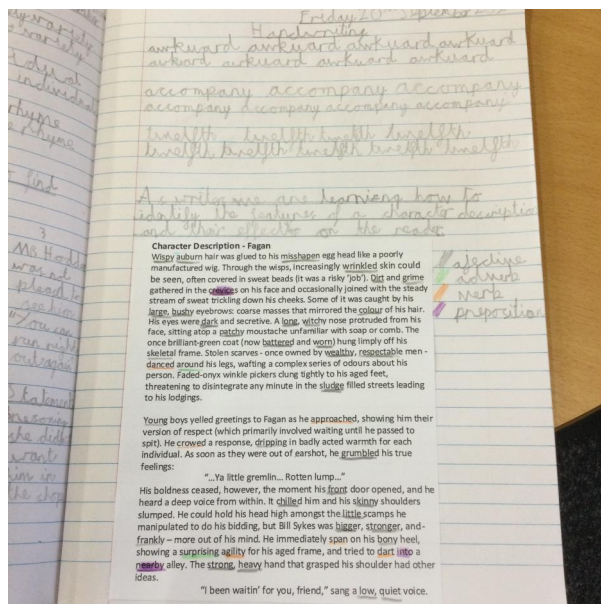 Friday 20th September
Handwriting
awkward awkward awkward awkward
awkward awkward awkward awkward
accompany accompany accompany
accompany accompany accompany accompany
twelfth twelfth twelfth twelfth
twelfth twelfth twelfth twelfth twelfth
As writers we are learning how to
identify the features of a character description
and their effects on the reader
Character Description - Fagan
Wispy auburn hair was glued to his misshapen egg head like a poorly
manufactured wig. Through the wisps, increasingly wrinkled skin could
be seen, often covered in sweat beads (it was a risky ‘job’). Dirt and grime
gathered in the crevices on his face and occasionally joined with the steady
stream of sweat trickling down his cheeks. Some of it was caught by his
large, bushy eyebrows: coarse masses that mirrored the colour of his hair.
His eyes were dark and secretive. A long, witchy nose protruded from his
face, sitting atop a patchy moustache unfamiliar with soap or comb. The
once brilliant-green coat (now battered and worn) hung limply off his
skeletal frame. Stolen scarves - once owned by wealthy, respectable men -
danced around his legs, wafting a complex series of odours about his
person. Faded-onyx winkle pickers clung tightly to his aged feet,
threatening to disintegrate any minute in the sludge filled streets leading
to his lodgings.
Young boys yelled greetings to Fagan as he approached, showing him their
version of respect (which primarily involved waiting until he passed to
spit). He crowed a response, dripping in badly acted warmth for each
individual. As soon as they were out of earshot, he grumbled his true
feelings:
“...Ya little gremlin... Rotten lump...”
His boldness ceased, however, the moment his front door opened, and he
heard a deep voice from within. It chilled him and his skinny shoulders
slumped. He could hold his head high amongst the little scamps he
manipulated to do his bidding, but Bill Sykes was bigger, stronger, and-
frankly – more out of his mind. He immediately span on his bony heel,
showing a surprising agility for his aged frame, and tried to dart into a
nearby alley. The strong, heavy hand that grasped his shoulder had other
ideas.
“I been waitin’ for you, friend,” sang a low, quiet voice.
adjective
adverb
verb
preposition
individual
rhyme
rhyme
find
3
was not
pleased to
see him
"You can
run right
out again
she didn't
want
him in
the shop